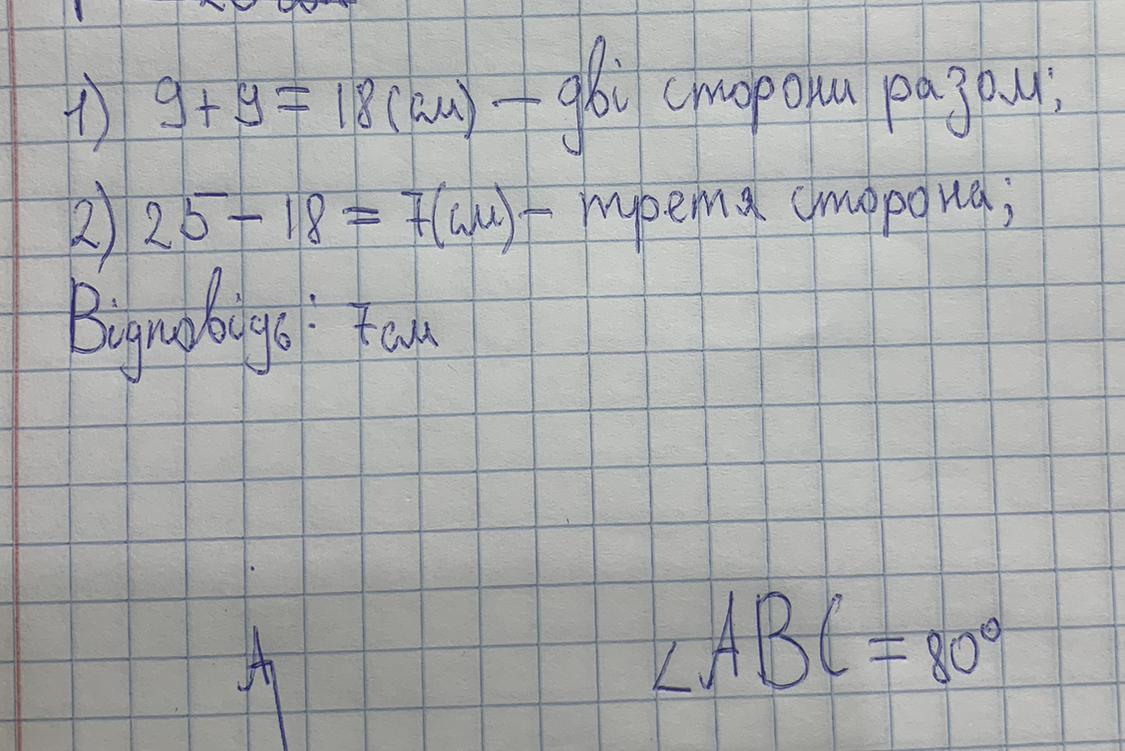 1) 9+9=18(см) – дві сторони разом;
2) 25–18=7(см) – третя сторона;
Відповідь: 7см
∠ABC=80°
A